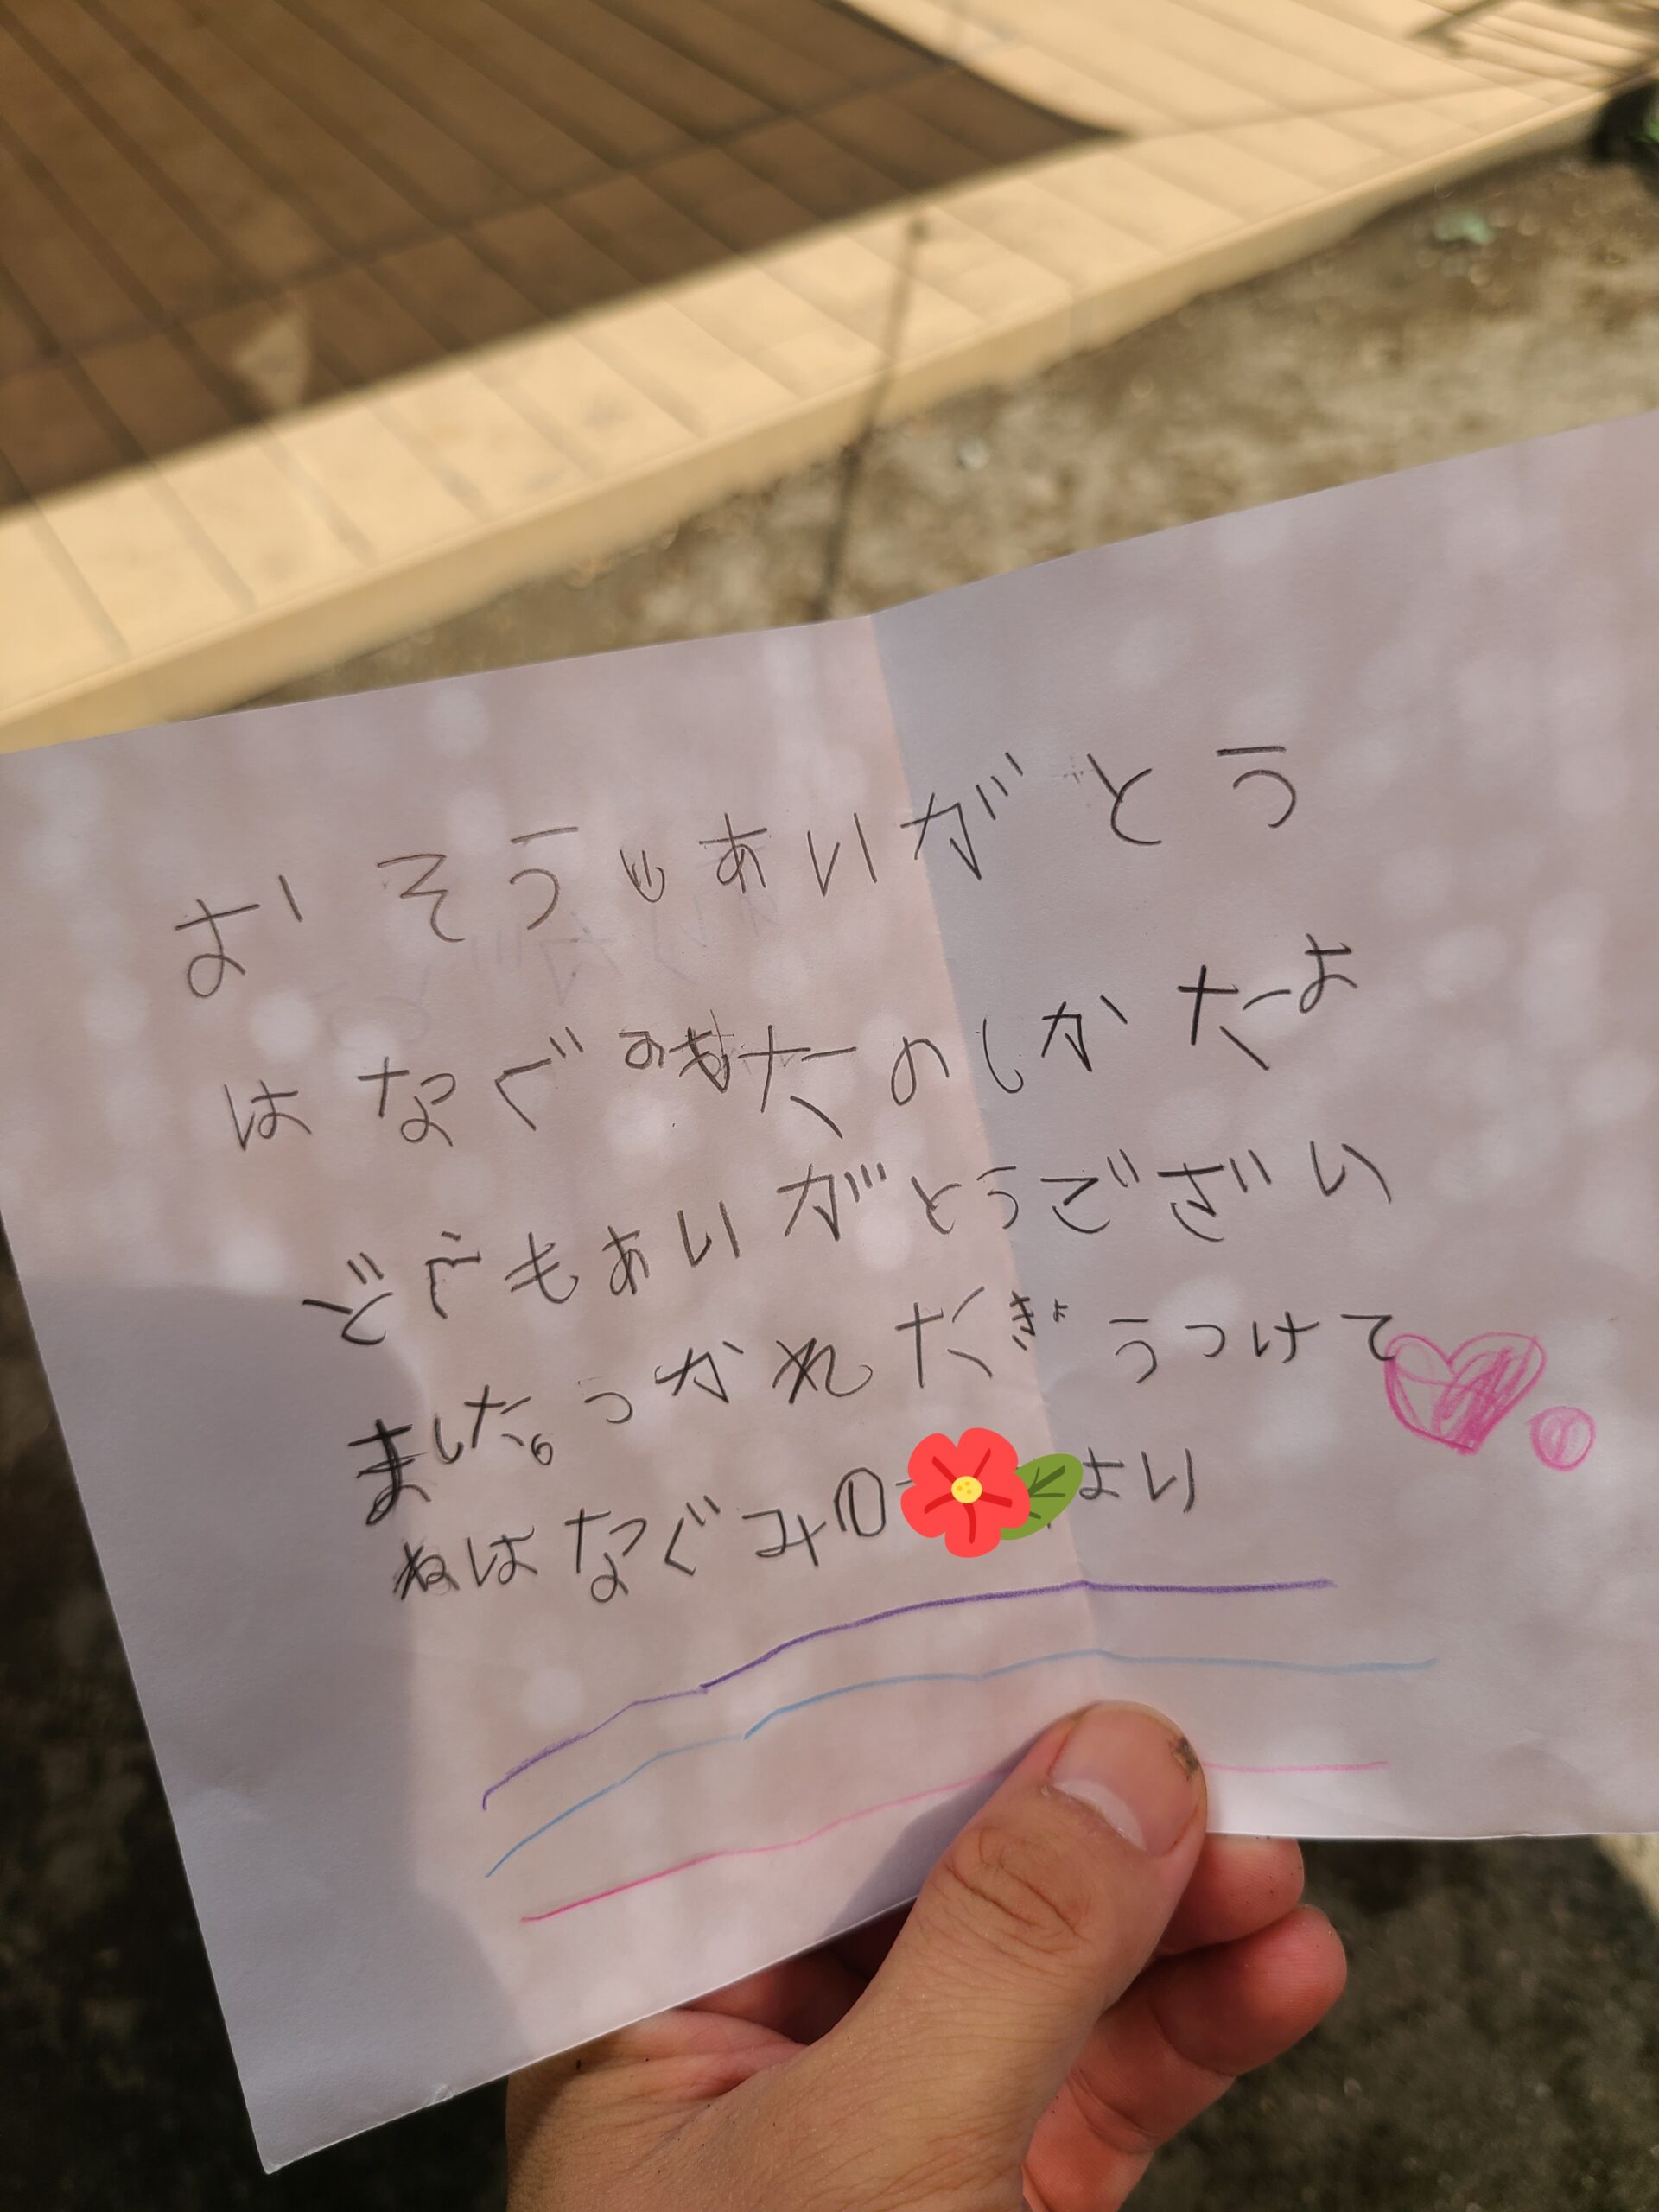 おそうじあいがとう
はなぐみもたのしかたよ
どうもあいがとうござい
ました。つかれたぎょうつけて
ねはなぐみ より